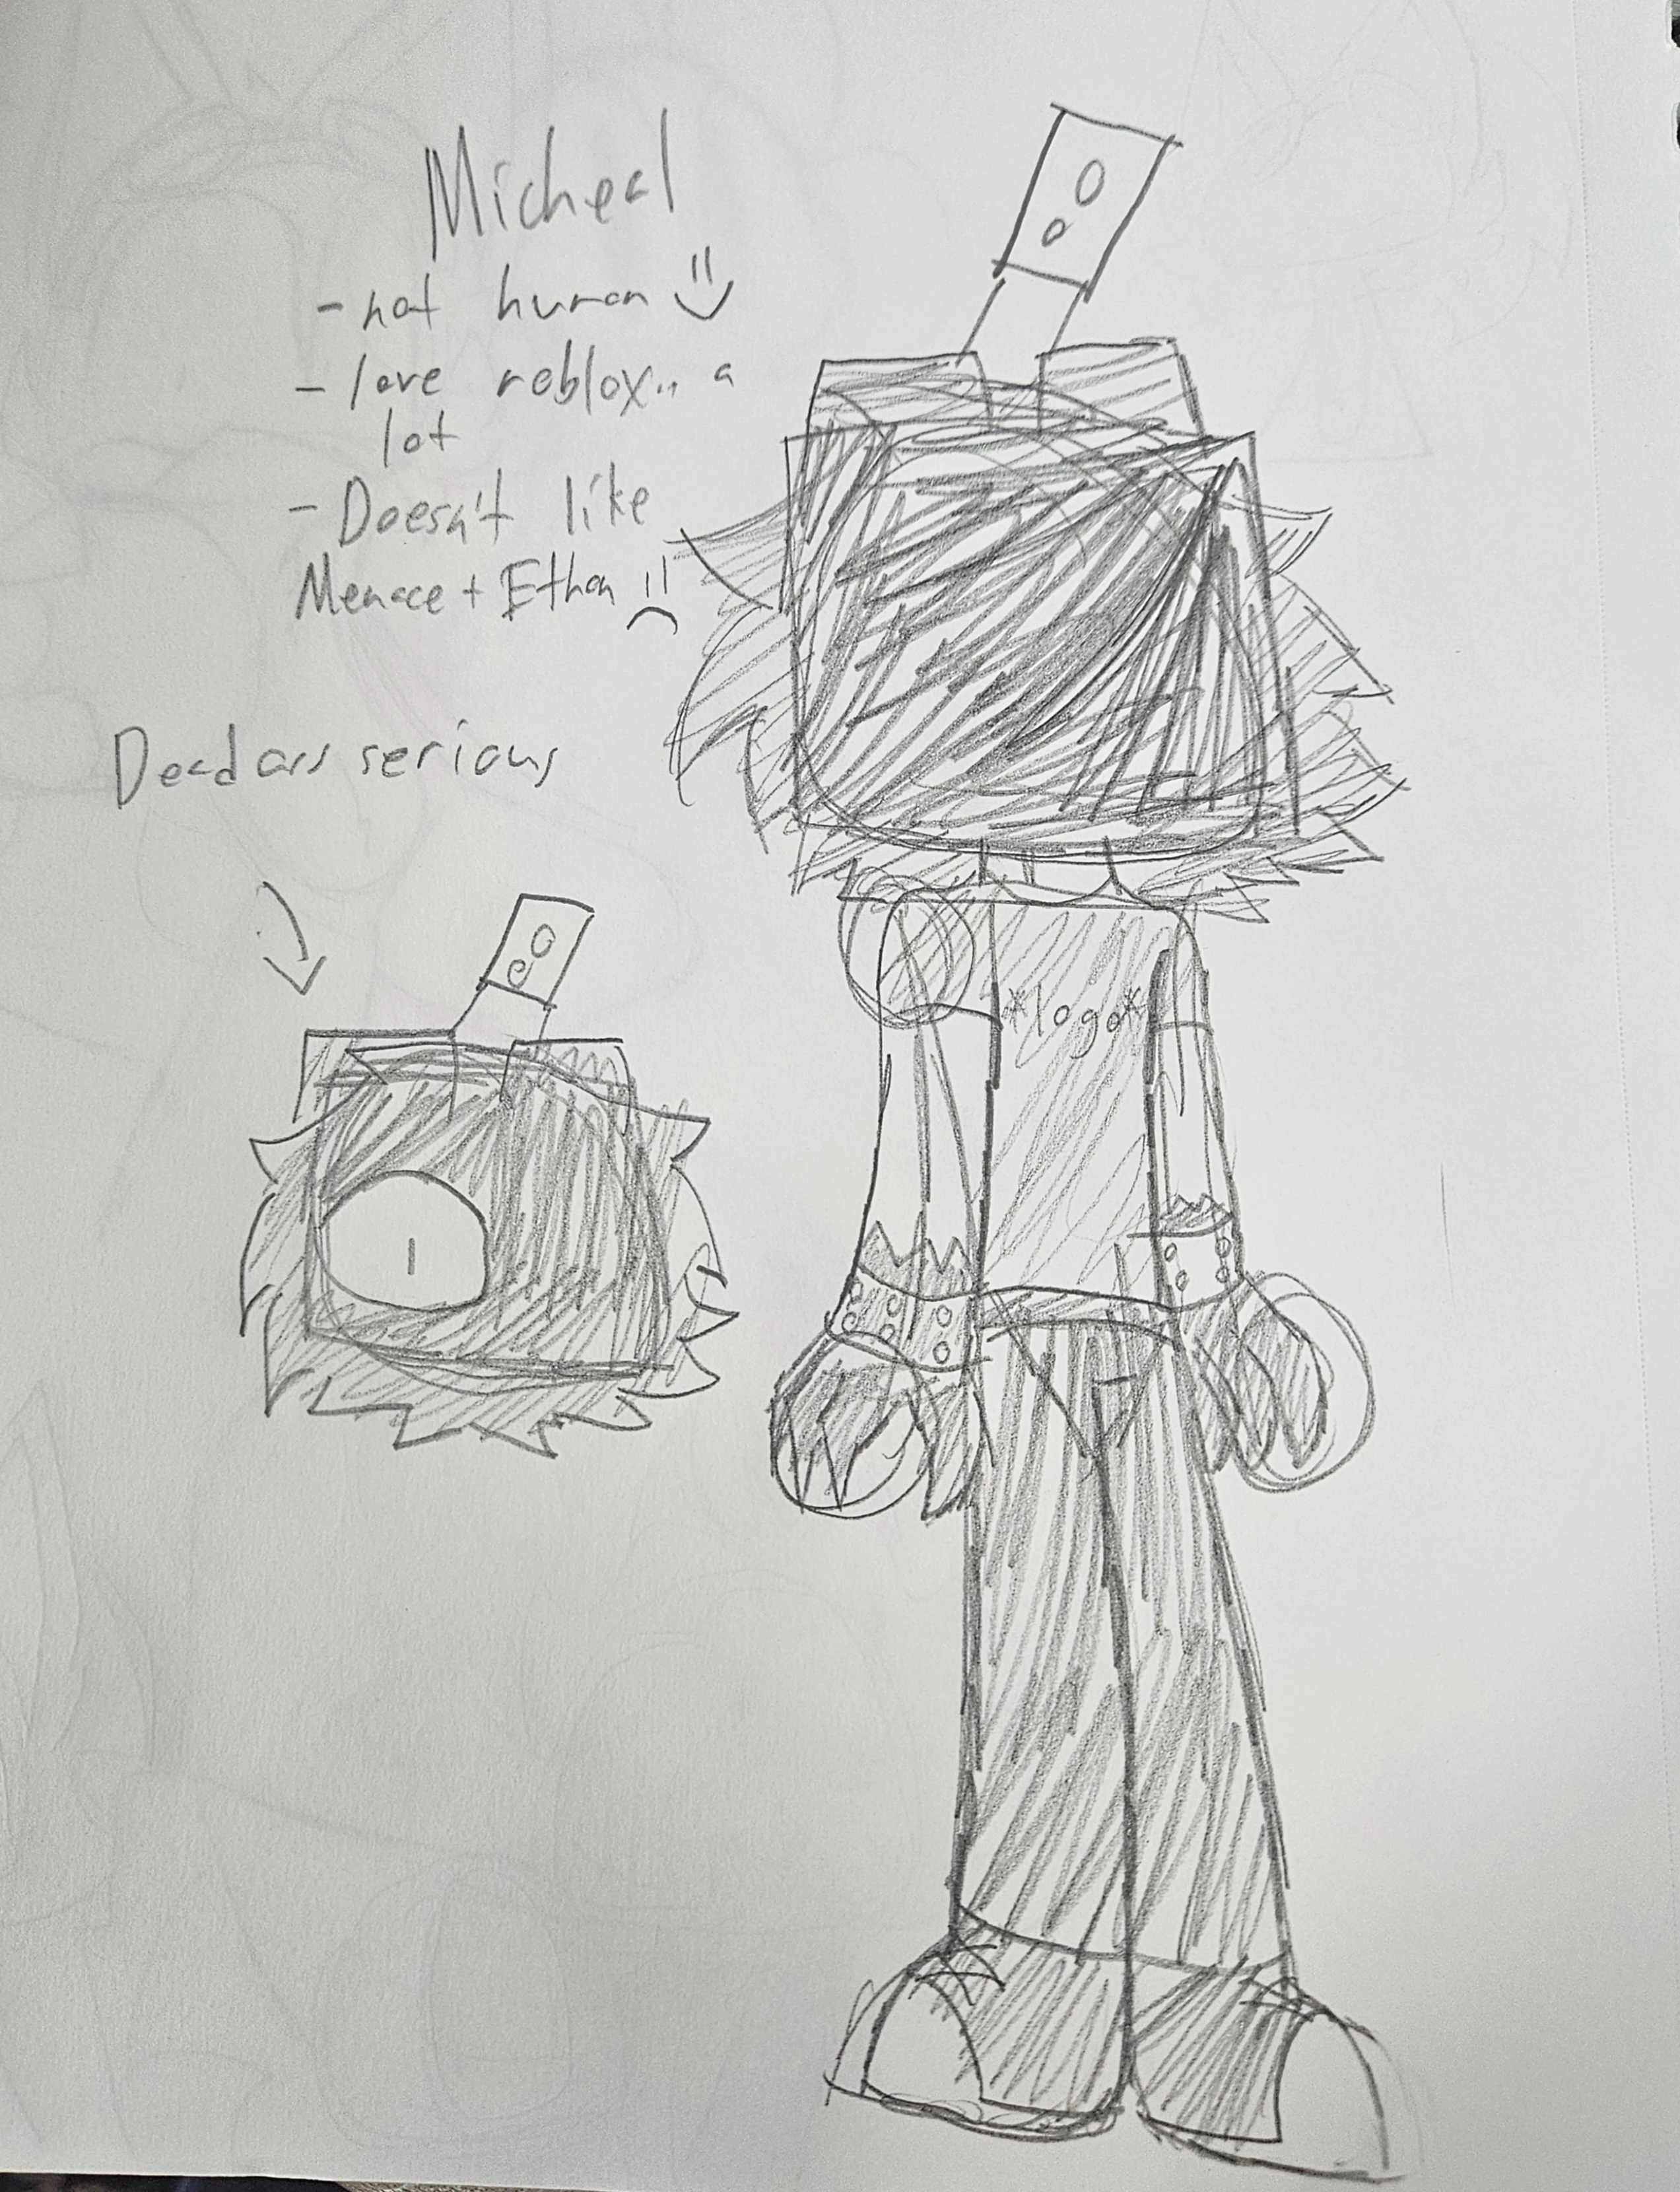 Micheal
- not human
- love roblox.. a
lot
- Doesn't like
Menace + Ethan
Dead ass serious
*logo*